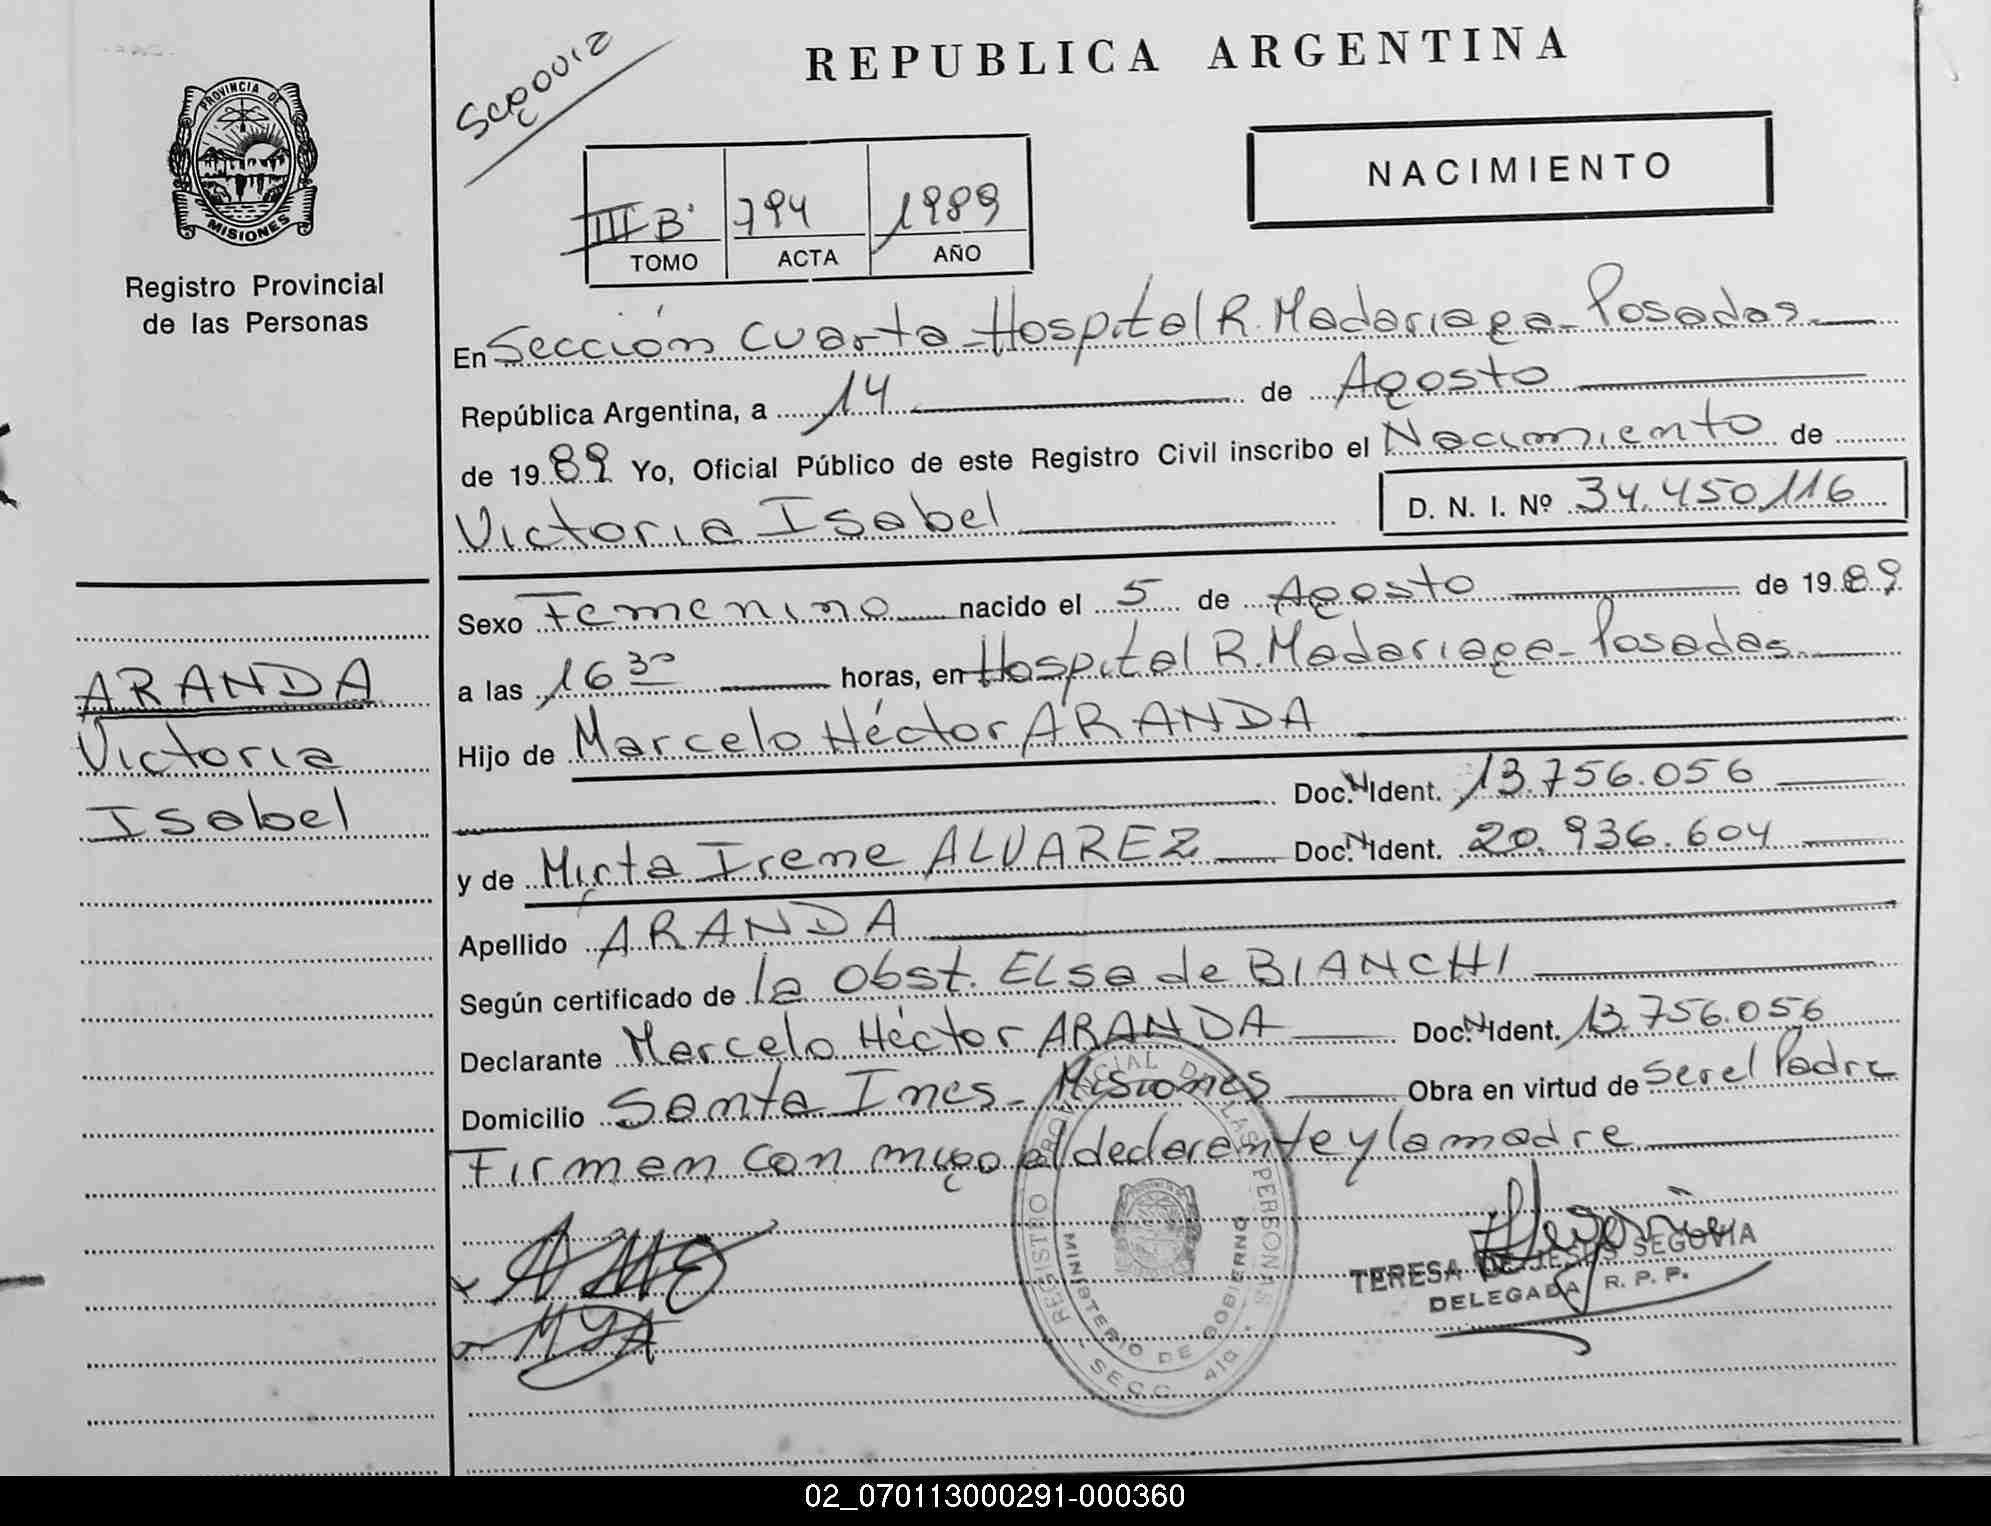 SCQ0012
REPUBLICA ARGENTINA
PROVINCIA DE
MISIONES
Registro Provincial
de las Personas
NACIMIENTO
III B' 794 1989
TOMO ACTA AÑO
En Sección Cuarta - Hospital R. Madariaga - Posadas.
República Argentina, a 14 de Agosto
de 19 89 Yo, Oficial Público de este Registro Civil inscribo el Nacimiento de
Victoria Isabel D. N. I. Nº 34.450.116
Sexo Femenino nacido el 5 de Agosto de 19 89
a las 16 30 horas, en Hospital R. Madariaga - Posadas.
Hijo de Marcelo Héctor ARANDA
Doc. N Ident. 13.756.056
y de Mirta Irene ALVAREZ Doc. N Ident. 20.936.604
Apellido ARANDA
Según certificado de la Obst. ELSa de BIANCHI
Declarante Marcelo Héctor ARANDA Doc. N Ident. 13.756.056
Domicilio Santa Ines - Misiones Obra en virtud de ser el Padre
Firman con migo el declarante y la madre
ARANDA
Victoria
Isabel
REGISTRO PROVINCIAL DE LAS PERSONAS
MINISTERIO DE GOBIERNO
SECC. 4ta.
TERESA DE JESUS SEGOVIA
DELEGADA R. P. P.
02_070113000291-000360